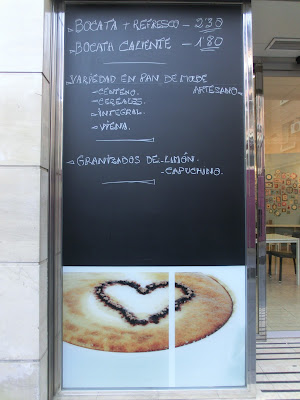 BOCATA + REFRESCO - 2'30
BOCATA CALIENTE - 1'80
VARIEDAD EN PAN DE MOLDE
ARTESANO
- CENTENO.
- CEREALES.
INTEGRAL
VIENA.
GRANIZADOS DE LIMÓN.
- CAPUCHINO.